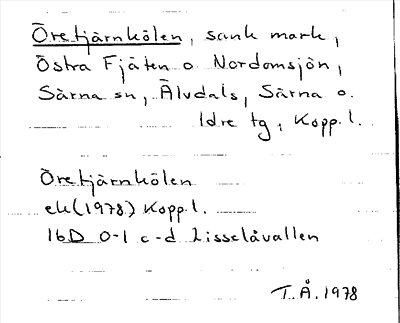 Öretjärnkölen, sank mark,
Östra Fjäten o. Nordomsjön,
Särna sn, Älvdals, Särna o.
Idre tg, Kopp. l.
Öretjärnkölen
ek (1978) Kopp. l.
16D 0-1 c-d Lisselåvallen
T.Å. 1978